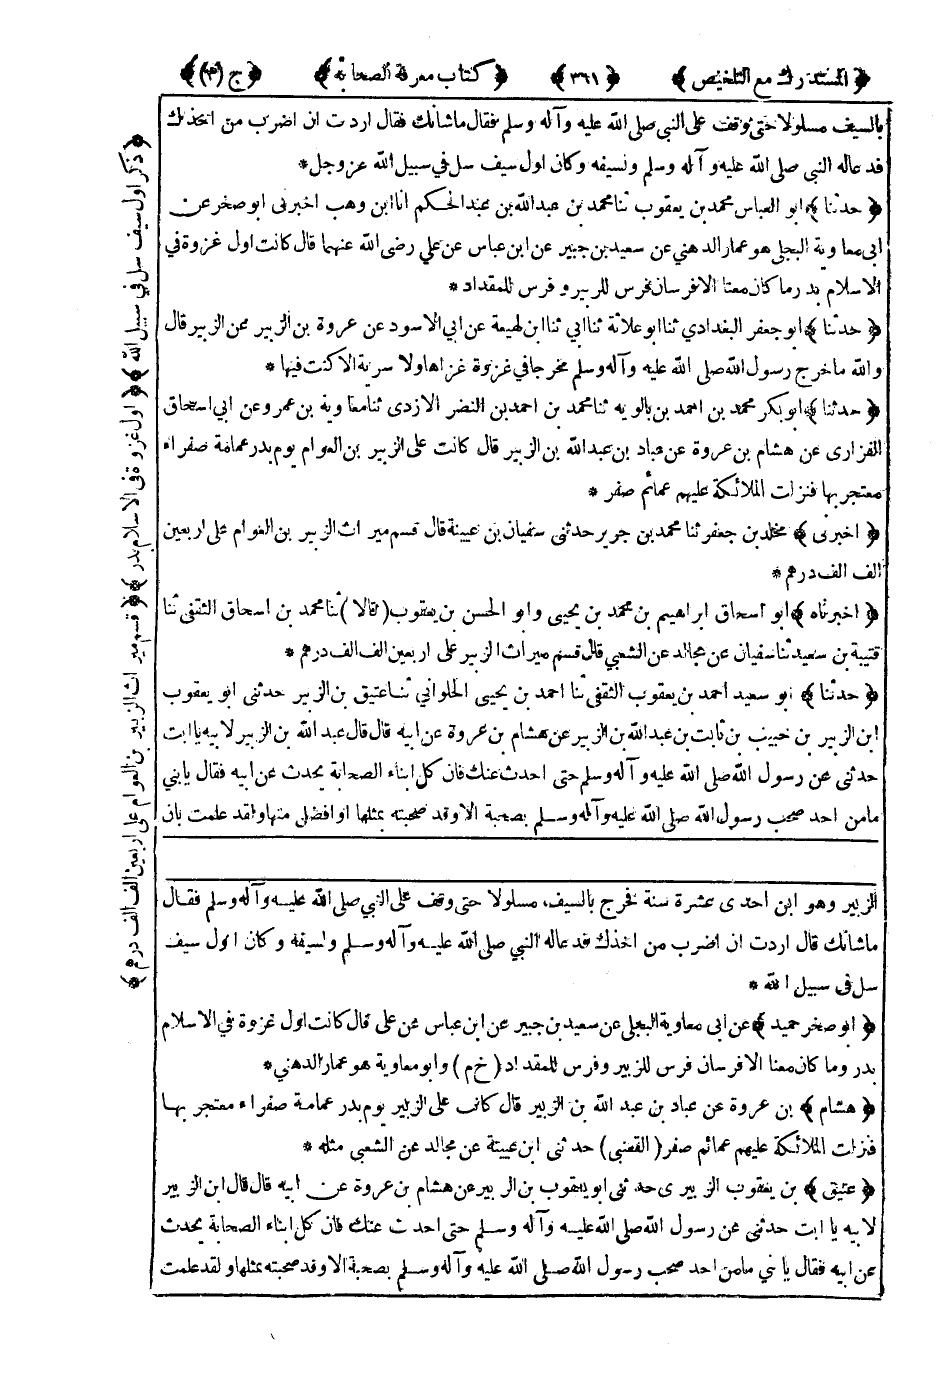 ﴿ المستدرك مع التلخيص ﴾ ﴿ ٣٦١ ﴾ ﴿ كتاب معرفة الصحابة ﴾ ﴿ ج (٣) ﴾
بالسيف مسلولا حتى وقف على النبي صلى الله عليه وآله وسلم فقال ماشانك فقال اردت ان اضرب من اخذك
فدعا له النبي صلى الله عليه وآله وسلم ولسيفه وكان اول سيف سل في سبيل الله عز وجل *
﴿ حدثنا ﴾ ابو العباس محمد بن يعقوب ثنا محمد بن عبدالله بن عبدالحكم انا ابن وهب اخبرنى ابو صخر عن
ابى معاوية البجلى هو عمار الدهني عن سعيد بن جبير عن ابن عباس عن علي رضى الله عنهما قال كانت اول غزوة في
الاسلام بدر وما كان معنا الافرسان فرس للزبير و فرس للمقداد *
﴿ حدثنا ﴾ ابو جعفر البغدادي ثنا ابو علاثة ثنا ابي ثنا ابن لهيعة عن ابي الاسود عن عروة بن الزبير عن الزبير قال
والله ماخرج رسول الله صلى الله عليه وآله وسلم مخرجا في غزوة غزاها ولا سرية الاكنت فيها *
﴿ حدثنا ﴾ ابو بكر محمد بن احمد بن بالويه ثنا محمد بن احمد بن النضر الازدى ثنا معاوية بن عمرو عن ابي اسحاق
الفزارى عن هشام بن عروة عن عباد بن عبدالله بن الزبير قال كانت على الزبير بن العوام يوم بدر عمامة صفراء
معتجر بها فنزلت الملائكة عليهم عمائم صفر *
﴿ اخبرنى ﴾ مخلد بن جعفر ثنا محمد بن جرير حدثنى سفيان بن عيينة قال قسم ميراث الزبير بن العوام على اربعين
الف الف درهم *
﴿ اخبرناه ﴾ ابو اسحاق ابراهيم بن محمد بن يحيى وابو الحسن بن يعقوب ( قالا ) ثنا محمد بن اسحاق الثقفى ثنا
قتيبة بن سعيد ثنا سفيان عن مجالد عن الشعبي قال قسم ميراث الزبير على اربعين الف الف درهم *
﴿ حدثنا ﴾ ابو سعيد احمد بن يعقوب الثقفى ثنا احمد بن يحيى الحلواني ثنا عتيق بن الزبير حدثنى ابو يعقوب
ابن الزبير بن خبيب بن ثابت بن عبدالله بن الزبير عن هشام بن عروة عن ابيه قال قال عبدالله بن الزبير لابيه يا ابت
حدثنى عن رسول الله صلى الله عليه وآله وسلم حتى احدث عنك فان كل ابناء الصحابة يحدث عن ابيه فقال يابني
مامن احد صحب رسول الله صلى الله عليه وآله وسلم بصحبة الاوقد صحبته بمثلها او افضل منها ولقد علمت بان
الزبير وهو ابن احدى عشرة سنة فخرج بالسيف مسلولا حتى وقف على النبي صلى الله عليه وآله وسلم فقال
ماشانك قال اردت ان اضرب من اخذك فدعا له النبي صلى الله عليه وآله وسلم ولسيفه وكان اول سيف
سل فى سبيل الله *
﴿ ابو صخر حميد ﴾ عن ابى معاوية البجلى عن سعيد بن جبير عن ابن عباس عن على قال كانت اول غزوة في الاسلام
بدر وما كان معنا الافرسان فرس للزبير وفرس للمقداد ( خ م ) وابو معاوية هو عمار الدهني *
﴿ هشام ﴾ بن عروة عن عباد بن عبد الله بن الزبير قال كانت على الزبير يوم بدر عمامة صفراء معتجر بها
فنزلت الملائكة عليهم عمائم صفر ( القضبى ) حدثنى ابن عيينة عن مجالد عن الشعبي مثله *
﴿ عتيق ﴾ بن يعقوب الزبيرى حدثنى ابو يعقوب بن الزبير عن هشام بن عروة عن ابيه قال قال ابن الزبير
لابيه يا ابت حدثنى عن رسول الله صلى الله عليه وآله وسلم حتى احدث عنك فان كل ابناء الصحابة يحدث
عن ابيه فقال يابني مامن احد صحب رسول الله صلى الله عليه وآله وسلم بصحبة الاوقد صحبته بمثلها ولقد علمت
﴿ ذكر اول سيف سل في سبيل الله ﴾ ﴿ اول غزوة في الاسلام بدر ﴾ ﴿ قسم ميراث الزبير بن العوام على اربعين الف الف درهم ﴾